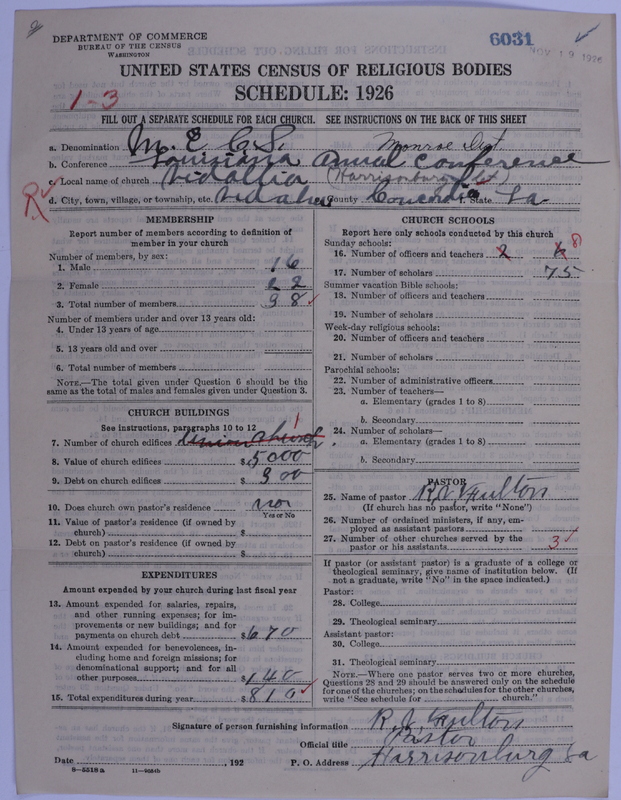 DEPARTMENT OF COMMERCE
BUREAU OF THE CENSUS
WASHINGTON
6031
NOV 19 1926
UNITED STATES CENSUS OF RELIGIOUS BODIES
SCHEDULE: 1926
1-3
FILL OUT A SEPARATE SCHEDULE FOR EACH CHURCH. SEE INSTRUCTIONS ON THE BACK OF THIS SHEET
a. Denomination M. E. C. S. Monroe Dist.
b. Conference Louisiana Annual Conference
c. Local name of church Vidallia (Harrisonburg Ct)
d. City, town, village, or township, etc. Vidalia e. County Concordia f. State La
MEMBERSHIP
Report number of members according to definition of
member in your church
Number of members, by sex:
1. Male 16
2. Female 22
3. Total number of members 38
Number of members under and over 13 years old:
4. Under 13 years of age
5. 13 years old and over
6. Total number of members
NOTE.—The total given under Question 6 should be the
same as the total of males and females given under Question 3.
CHURCH BUILDINGS
See instructions, paragraphs 10 to 12
7. Number of church edifices Union Church 1
8. Value of church edifices $5000
9. Debt on church edifices $ 900
10. Does church own pastor's residence no
Yes or No
11. Value of pastor's residence (if owned by
church) $
12. Debt on pastor's residence (if owned by
church) $
EXPENDITURES
Amount expended by your church during last fiscal year
13. Amount expended for salaries, repairs,
and other running expenses; for im-
provements or new buildings; and for
payments on church debt $670
14. Amount expended for benevolences, in-
cluding home and foreign missions; for
denominational support; and for all
other purposes $140
15. Total expenditures during year $810
CHURCH SCHOOLS
Report here only schools conducted by this church
Sunday schools:
16. Number of officers and teachers 2 6 8
17. Number of scholars 75
Summer vacation Bible schools:
18. Number of officers and teachers
19. Number of scholars
Week-day religious schools:
20. Number of officers and teachers
21. Number of scholars
Parochial schools:
22. Number of administrative officers
23. Number of teachers—
a. Elementary (grades 1 to 8)
b. Secondary
24. Number of scholars—
a. Elementary (grades 1 to 8)
b. Secondary
PASTOR
25. Name of pastor R. V. Fulton
(If church has no pastor, write "None")
26. Number of ordained ministers, if any, em-
ployed as assistant pastors
27. Number of other churches served by the
pastor or his assistants 3
If pastor (or assistant pastor) is a graduate of a college or
theological seminary, give name of institution below. (If
not a graduate, write "No" in the space indicated.)
Pastor:
28. College
29. Theological seminary
Assistant pastor:
30. College
31. Theological seminary
NOTE.—Where one pastor serves two or more churches,
Questions 28 and 29 should be answered only on the schedule
for one of the churches; on the schedules for the other churches,
write "See schedule for church."
Signature of person furnishing information R. V. Fulton
Official title Pastor
Date , 192 P. O. Address Harrisonburg La
8—5518a 11—9554b